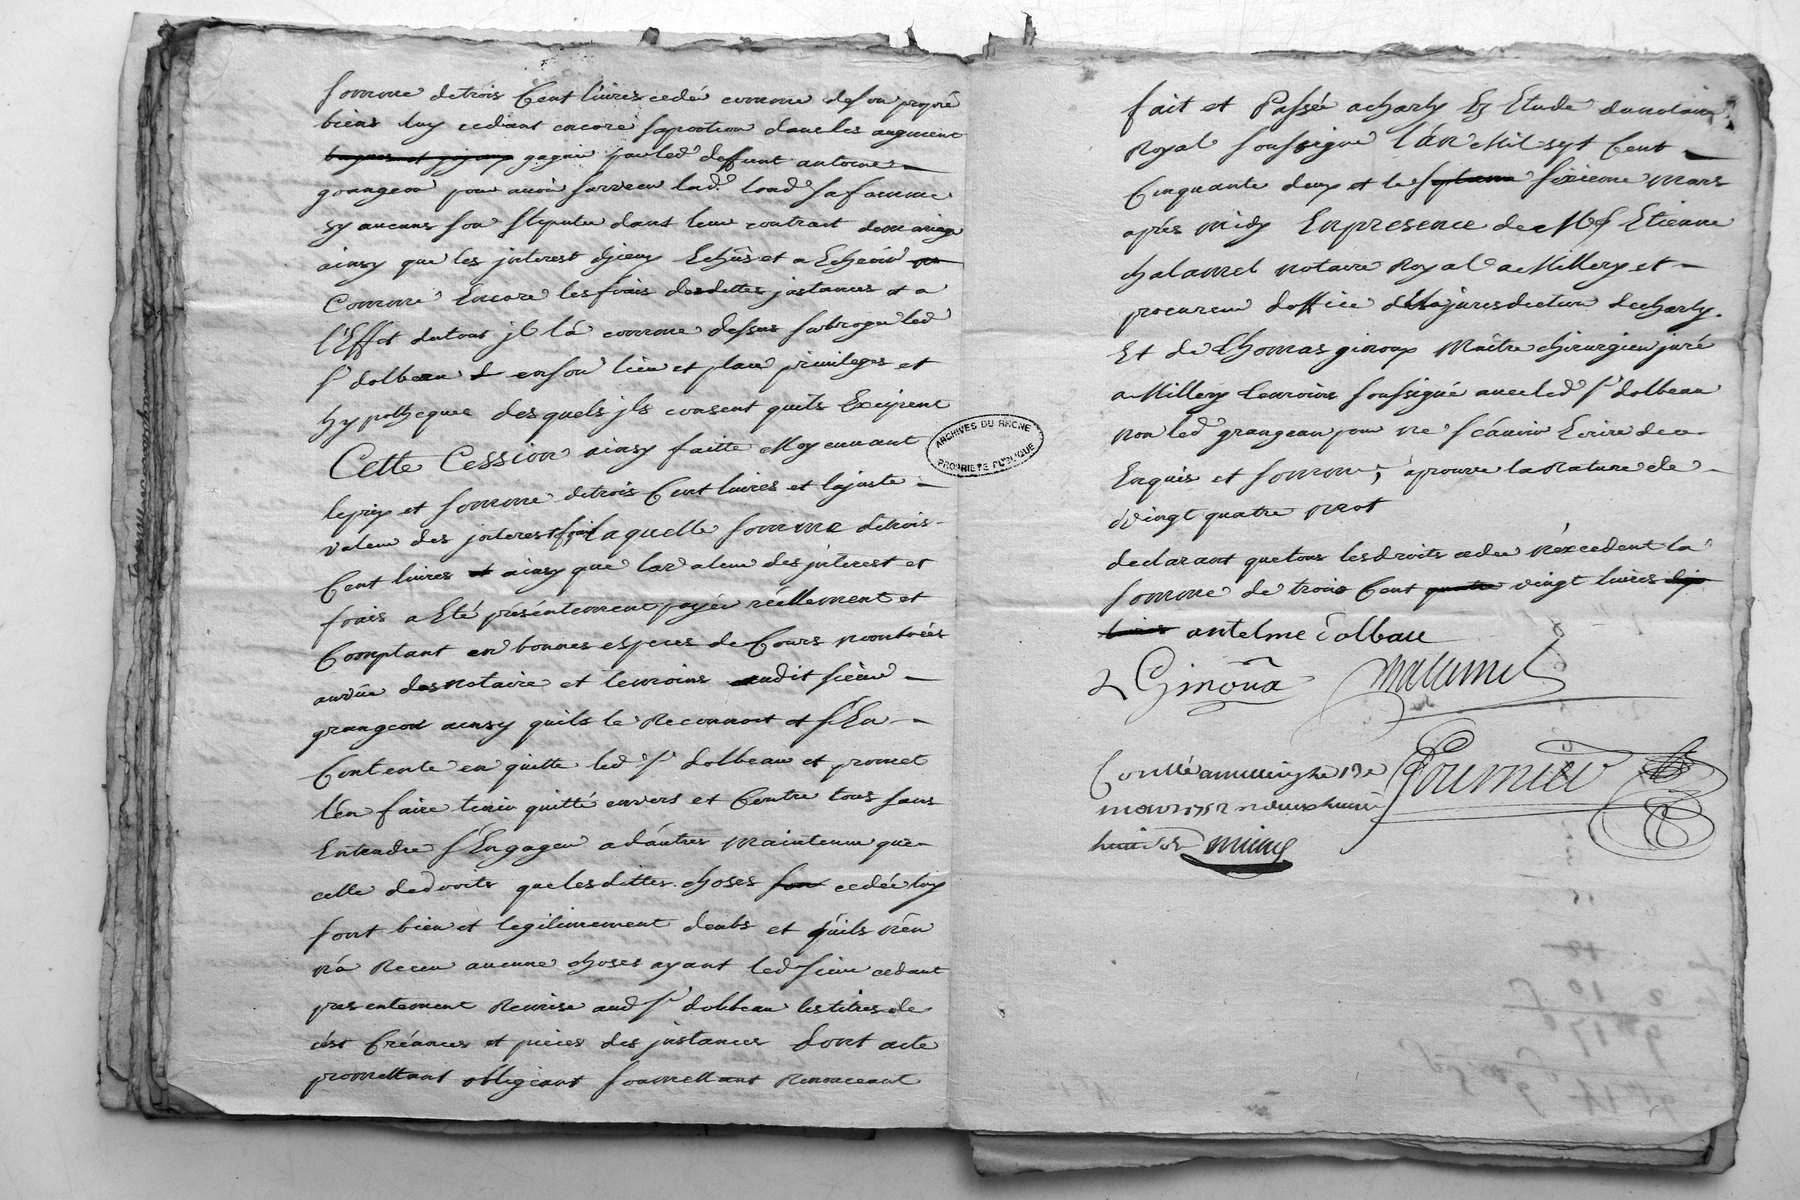 somme de trois Cent livres cedé comme de son propre
biens luy cediant encore sa portion dans les augment
bagues et joyaux gagné par led deffunt antoine
grangeon pour avoir survecu lad. load sa femme
sy aucuns son stipulée dans leur contract de mariage
ainsy que les jnterest djceux Echûs et a Echeoir
Comme Encore les frais desdittes jnstances et a
l'Effet detout jl la comme dessus subrogé led
sr dolbeau et en son lieu et place privileges et
hypotheques desquels jls consent quils Excipent
Cette Cession ainsy faitte Moyennant
le prix et somme detrois Cent livres et lajuste
valeur des jnterest frais laquelle somme detrois
Cent livres et ainsy que la valeur des jnterest et
frais a Eté présentement payée réellement et
Comptant en bonnes especes de Cours nombrées
au vûe des notaire et temoins audit sieur
grangeon ainsy quils le Reconnoit et s'En
Contente en quitte led sr dolbeau et promet
l'en faire tenir quitté envers et Contre tous sans
Entendre s'Engager a d'autres Maintenue que
celle dedroits que lesdittes choses son cedée luy
sont bien et legitimement deubs et quils n'en
n'a Receu aucune choses ayant led sieur cedant
presentement Remise aud sr dolbeau les titres de
cest Créances et pieces des jnstances Dont acte
promettant obligeant soumettant Renonceant
fait et Passée acharly Ez Etude du notaire
Royal soussigné l'an Mil sept Cent
Cinquante deux et le septieme sixieme Mars
après midy En presence de Me Etienne
chalamel notaire Royal a Millery et
procureur doffice de la jurisdiction decharly.
Et de Thomas ginoux Maître chirurgien juré
a Millery temoins soussigné avec led sr dolbeau
non led grangeon pour ne sçavoir Ecrire de ce
Enquis et sommé, aprouve la Rature de
vingt quatre mot
declarant que tous les droits cedée n'excedent la
somme de trois Cent quatre vingt livres
antelme Dolbau
Ginoux
chalamel
Conllé a millery le
mars 1752
Fournier
ARCHIVES DU RHÔNE
PROPRIÉTÉ PUBLIQUE